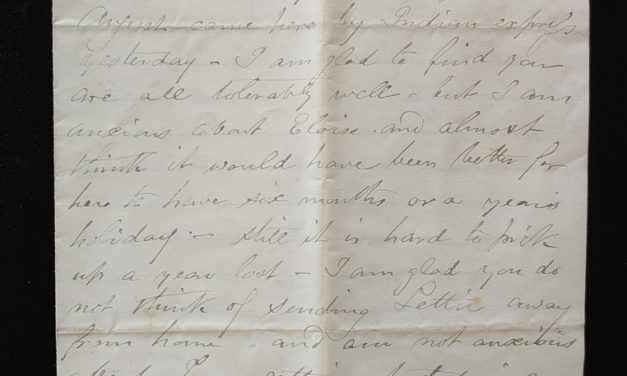 August came here by Indian express
yesterday - I am glad to find you
are all tolerably well - but I am
anxious about Eloise and almost
think it would have been better for
her to have six months or a years
holiday - still it is hard to pick
up a year lost - I am glad you do
not think of sending Lettie away
from home - and am not anxious